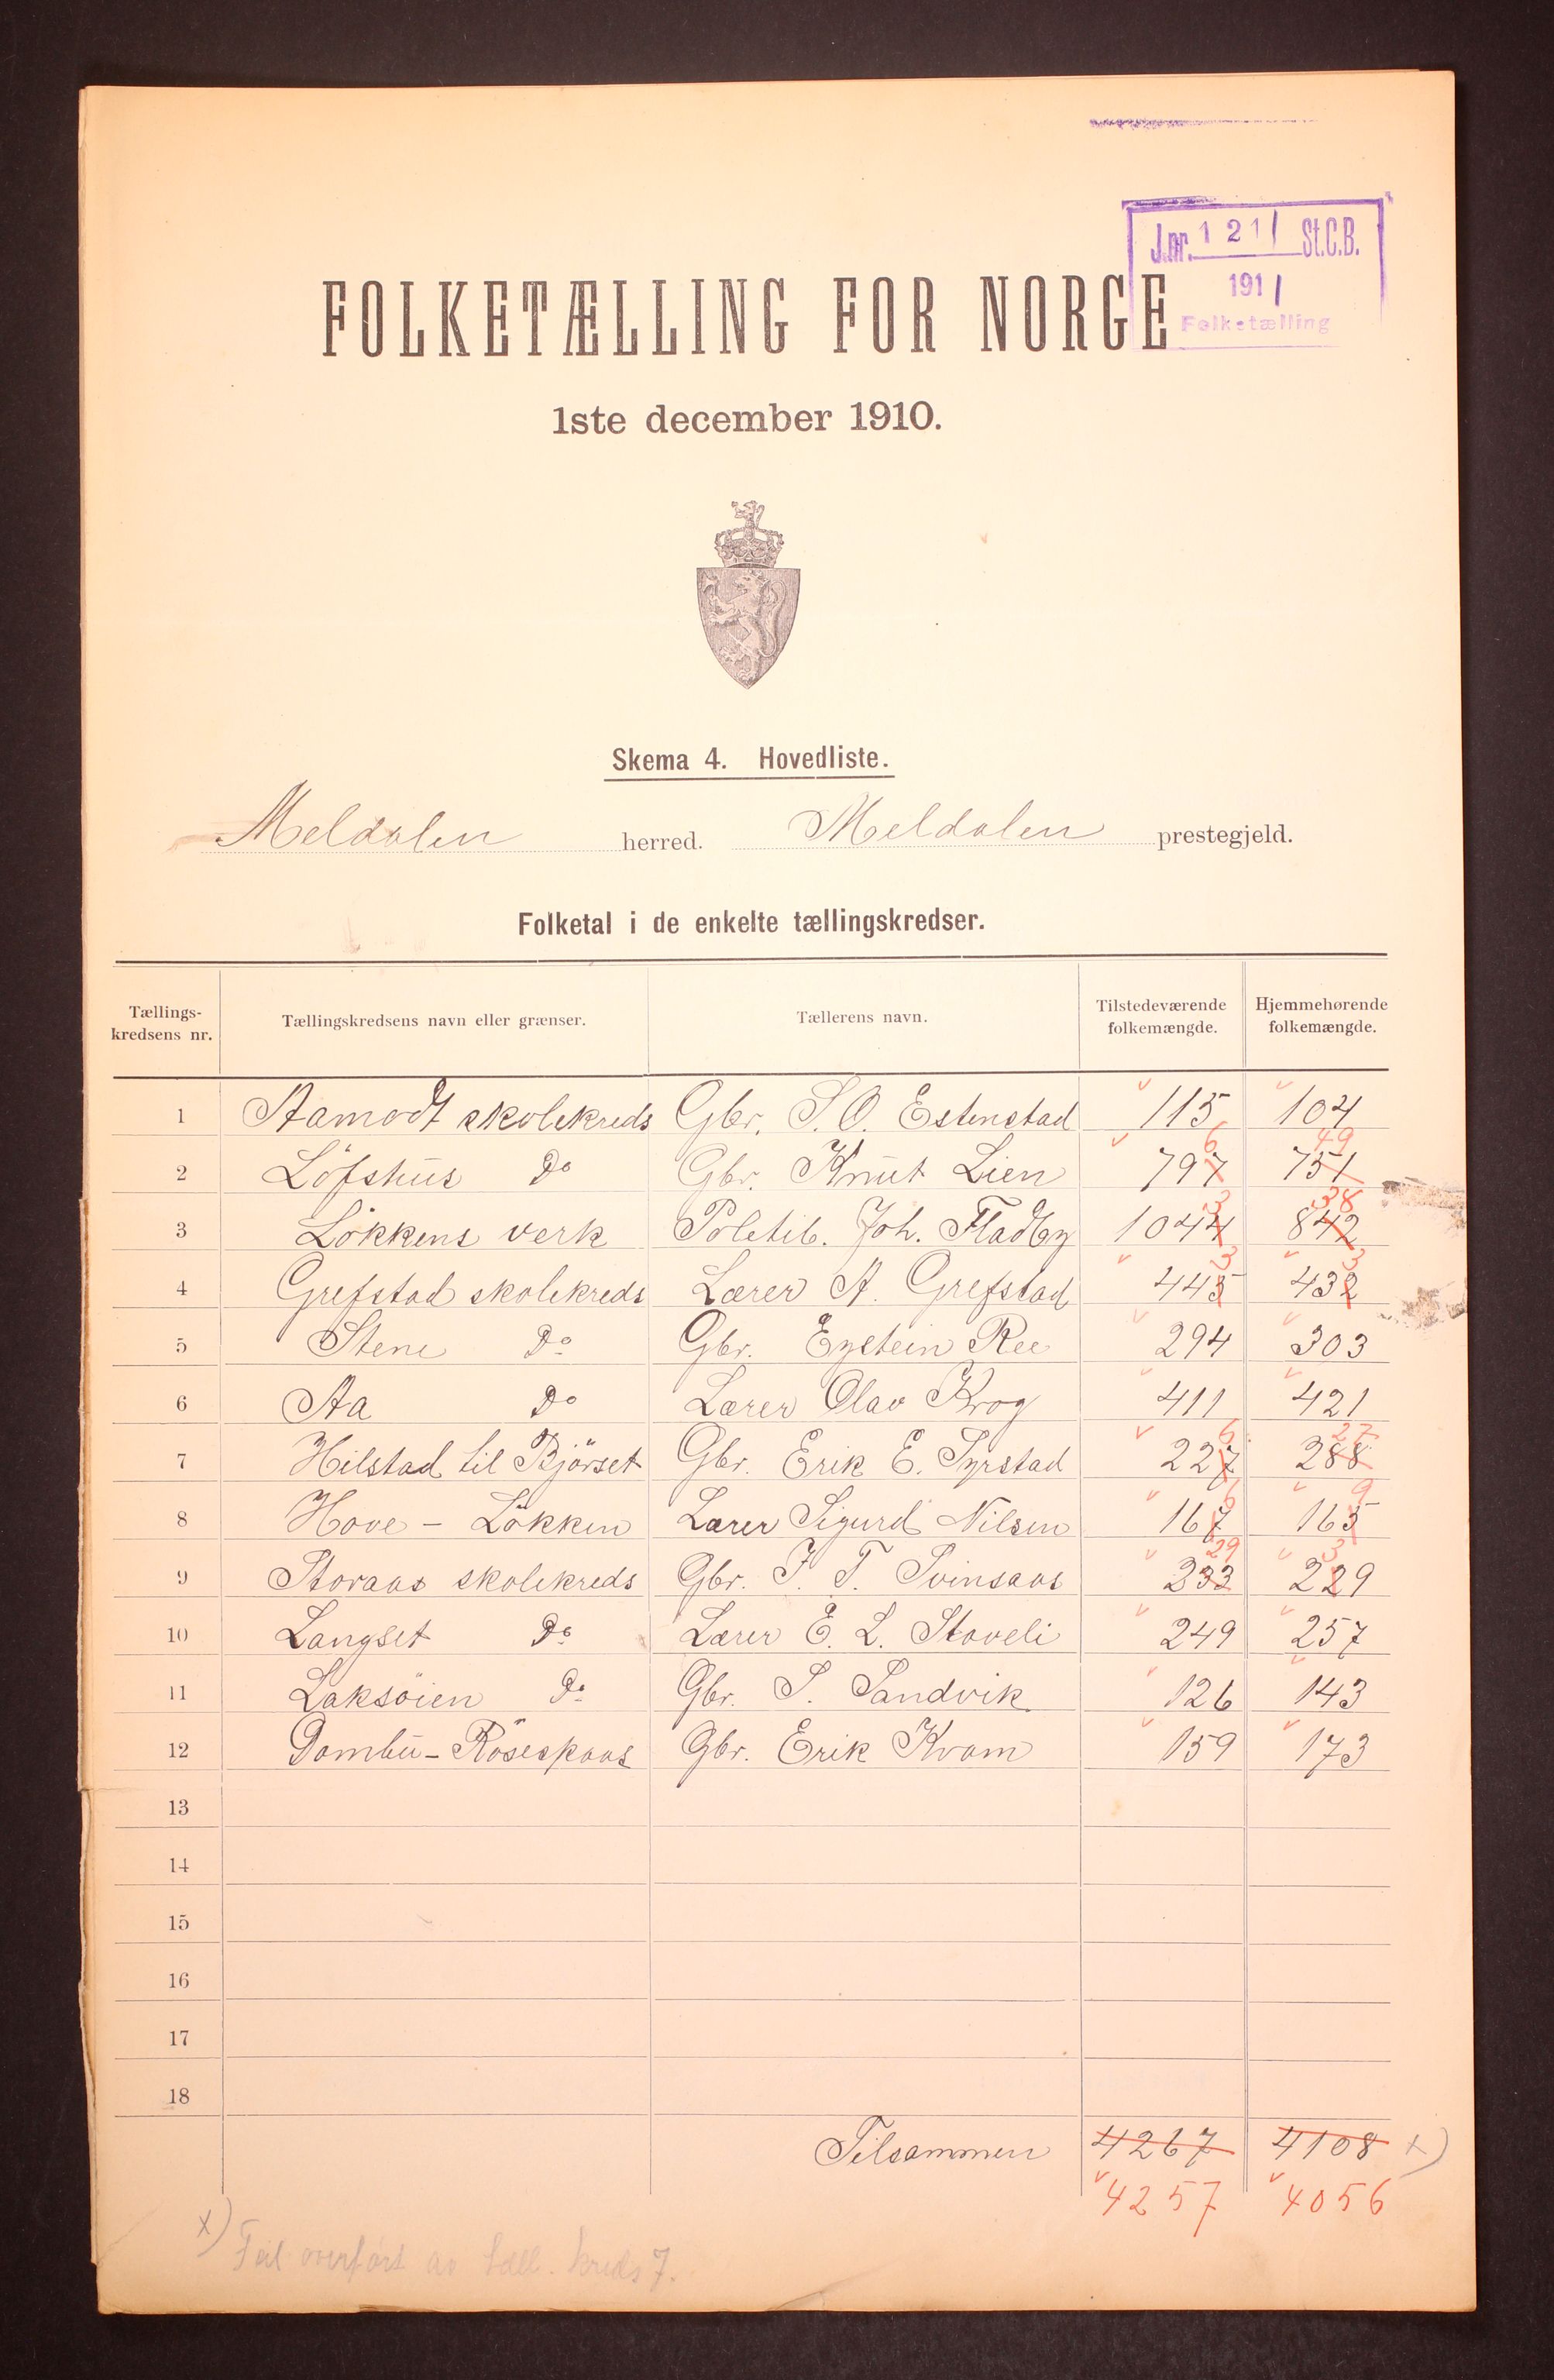 J.nr. 121/ St.C.B.
1911
Folketælling
FOLKETÆLLING FOR NORGE
1ste december 1910.
Skema 4. Hovedliste.
Meldalen herred. Meldalen prestegjeld.
Folketal i de enkelte tællingskredser.
Tællings-kredsens nr. Tællingskredsens navn eller grænser. Tællerens navn. Tilstedeværende folkemængde. Hjemmehørende folkemængde.
1 Aamodt skolekreds Gbr. S. O. Estenstad 115 104
2 Löfshus Do Gbr. Knut Lien 797 6 751 49
3 Løkkens verk Poletib. Joh. Fladby 1044 3 842 38
4 Grefstad skolekreds Lærer A. Grefstad 445 3 432 3
5 Stene Do Gbr. Eystein Ree 294 303
6 Aa Do Lærer Olav Krog 411 421
7 Hilstad til Björset Gbr. Erik E. Syrstad 227 6 288 27
8 Hove - Løkken Lærer Sigurd Nilsen 167 6 165 9
9 Storaas skolekreds Gbr. J. T. Svinsaas 233 29 229 3
10 Langset Do Lærer E. L. Stoveli 249 257
11 Laksöien Do Gbr. S. Sandvik 126 143
12 Dombu - Röseskaas Gbr. Erik Kvam 159 173
13
14
15
16
17
18
Tilsammen 4267 4108 x)
4257 4056
x) Feil overført av tæll. kreds 7.